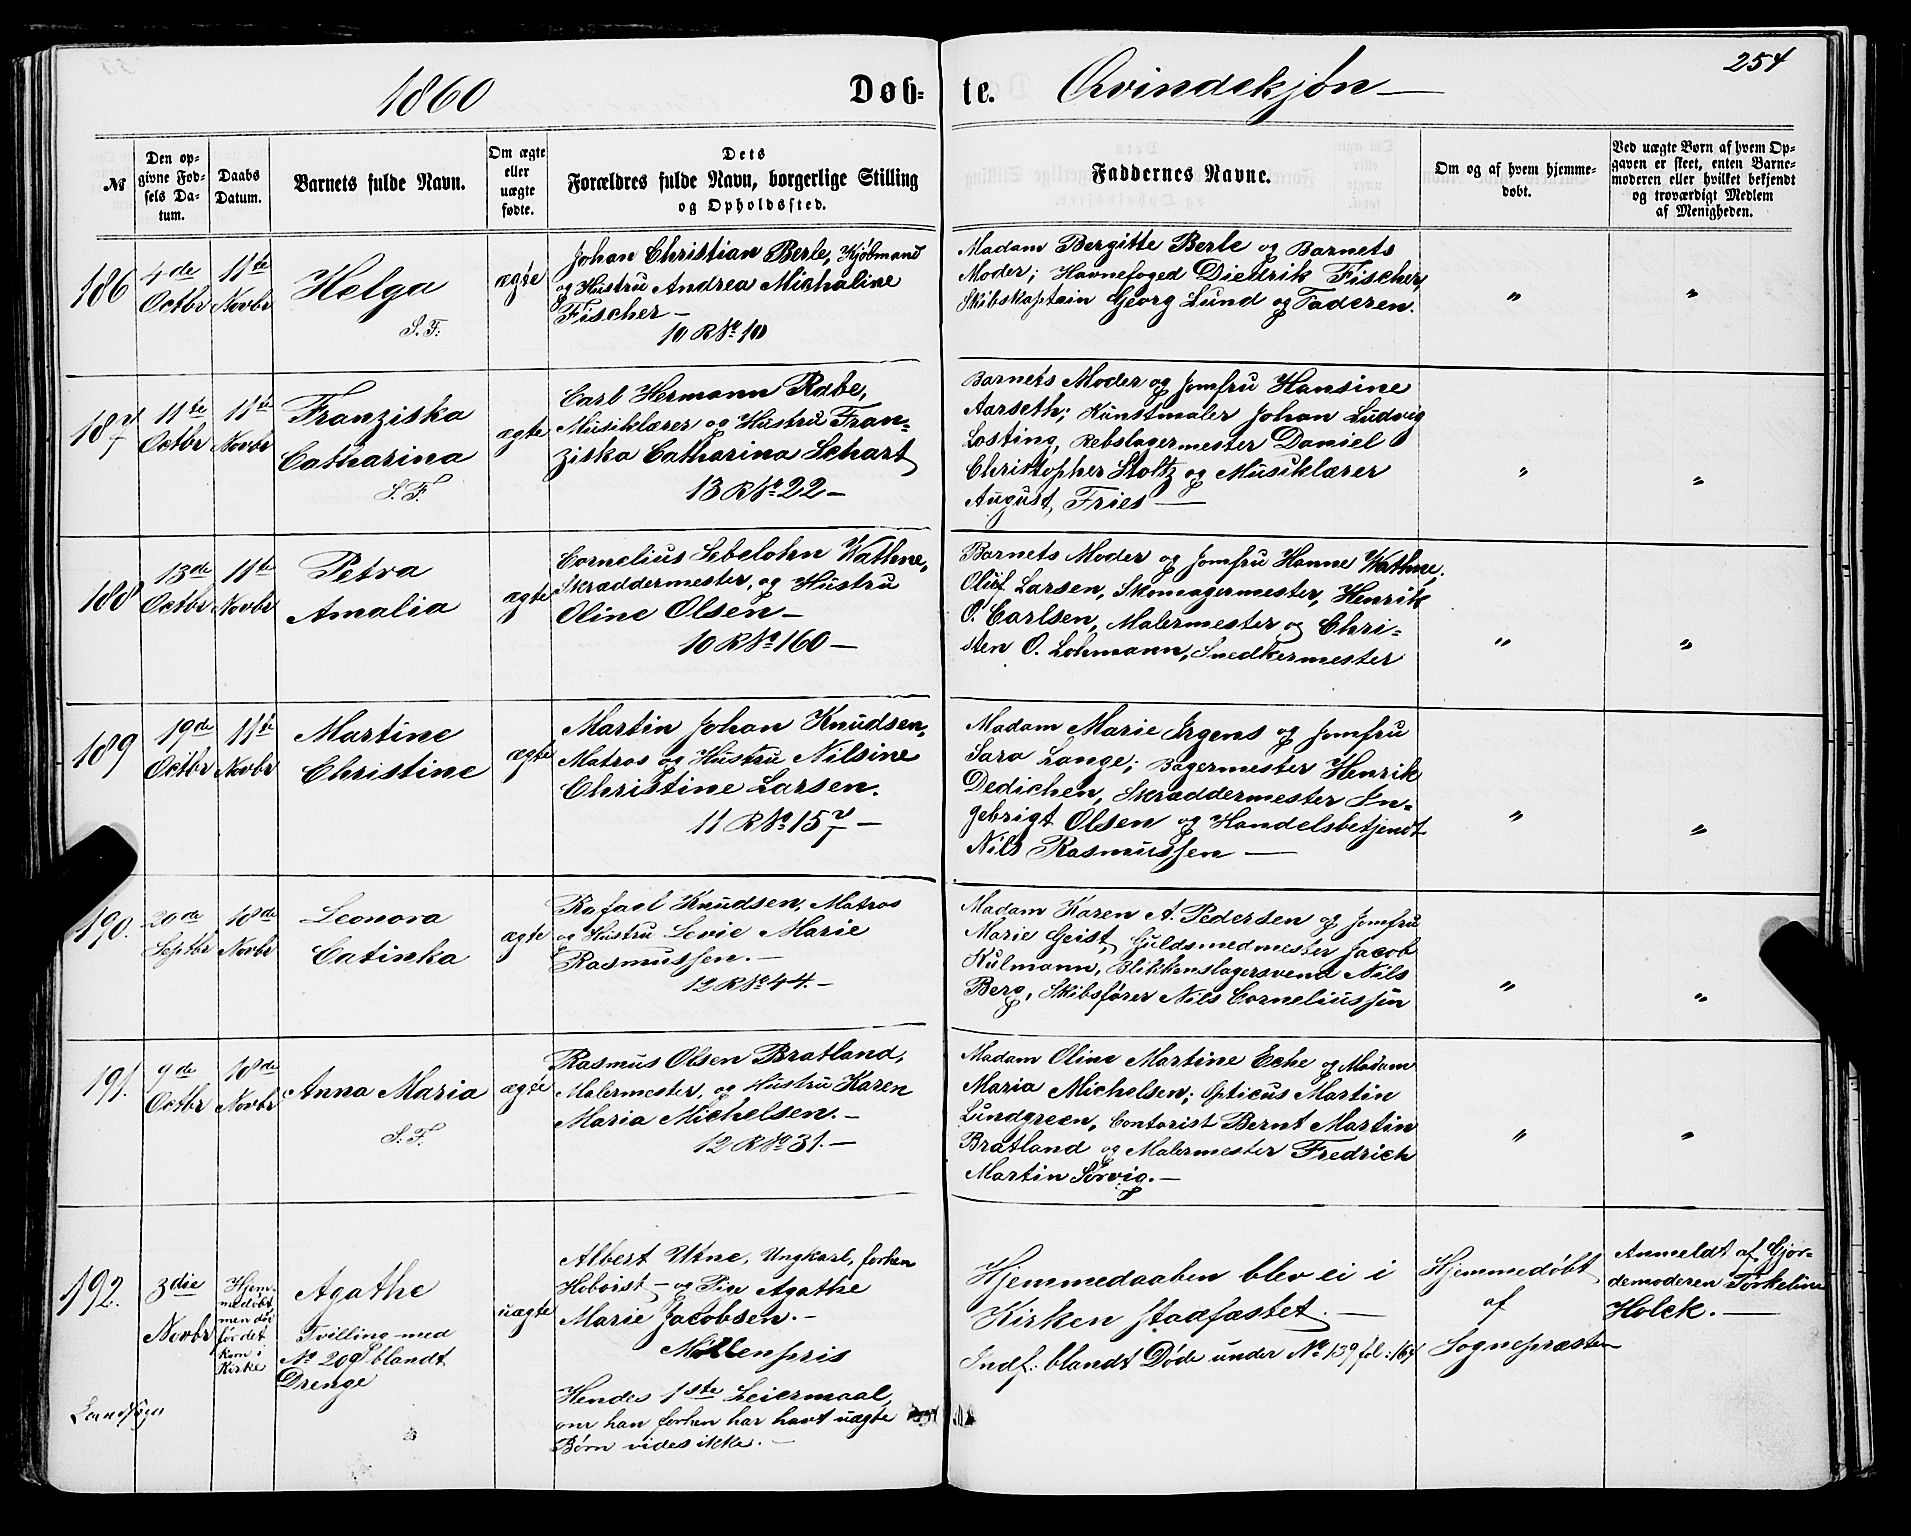 1860
Døb-
te.
Qvindekjøn—
254
№
Den op-
givne Fød-
sels Da-
tum.
Daabs
Datum.
Barnets fulde Navn.
Om ægte
eller
uægte
fødte.
Dets
Forældres fulde Navn, borgerlige Stilling
og Opholdssted.
Faddernes Navne.
Om og af hvem hjemme-
døbt.
Ved uægte Børn af hvem Op-
gaven er skeet, enten Barne-
moderen eller hvilket bekjendt
og troværdigt Medlem
af Menigheden.
186
4de
Octbr
11te
Novbr
Helga
S. F.
ægte
Johan Christian Berle, Kjøbmand
og Hustru Andrea Michaline
Fischer—
10 R № 10
Madam Bergitte Berle og Barnets
Moder; Havnefoged Diedrik Fischer,
Skibskaptain Georg Lund og Faderen.
"
"
187
11te
Octbr
11te
Novbr
Franziska
Catharina
S. F.
ægte
Carl Hermann Rabe,
Musiklærer og Hustru Fran-
ziska Catharina Schart
13 R № 22—
Barnets Moder og Jomfru Hansine
Aarseth; Kunstmaler Johan Ludvig
Losting, Rebslagermester Daniel
Christopher Stoltz og Musiklærer
August Fries—
"
"
188
13de
Octbr
11te
Novbr
Petra
Amalia
ægte
Cornelius Sebelohn Wathne,
Skræddermester, og Hustru
Oline Olsen—
10 R № 160—
Barnets Moder og Jomfru Hanne Wathne;
Oluf Larsen, Skomagermester, Henrik
O. Carlsen, Malermester og Chri-
sten O. Lohmann, Snedkermester
"
"
189
19de
Octbr
11te
Novbr
Martine
Christine
ægte
Martin Johan Knudsen,
Matros og Hustru Nilsine
Christine Larsen.
11 R № 157—
Madam Marie Irgens og Jomfru
Sara Lange; Bagermester Henrik
Dedichen, Skræddermester In-
gebrigt Olsen og Handelsbetjendt
Nils Rasmussen—
"
"
190.
20de
Septbr
18de
Novbr
Leonora
Catinka
ægte
Rafael Knudsen, Matros
og Hustru Lovie Marie
Rasmussen.—
12 R № 44.—
Madam Karen A. Pedersen og Jomfru
Marie Geist, Guldsmedmester Jacob
Kulmann, Blikkenslagersvend Nils
Berg, Skibsfører Nils Corneliussen
"
"
191.
9de
Octbr
18de
Novbr
Anna Maria
S. F.
ægte
Rasmus Olsen Bratland,
Malermester, og Hustru Karen
Maria Michelsen.—
12 R № 31.—
Madam Oline Martine Eche og Madam
Maria Michelsen; Opticus Martin
Lundgreen, Contorist Bernt Martin
Bratland og Malermester Fredrich
Martin Sørvig.—
"
"
192.
3die
Novbr
Hjem-
medøbt
men død
før det
kom i
Kirke
Agathe
Tvilling med
№ 209 blandt
Drenge
uægte
Albert Utne, Ungkarl, forhen
Hoboist—og Pige Agathe
Marie Jacobsen.—
Møllenpris
Hendes 1ste Leiermaal,
om han forhen har havt uægte
Børn vides ikke.—
Hjemmedaaben blev ei i
Kirken stadfæstet.—
Indf: blandt Døde under № 139 fol: 164
Hjemmedøbt
af
Sognepræsten
Anmeldt af Gjor-
demoderen Torkeline
Holck.—